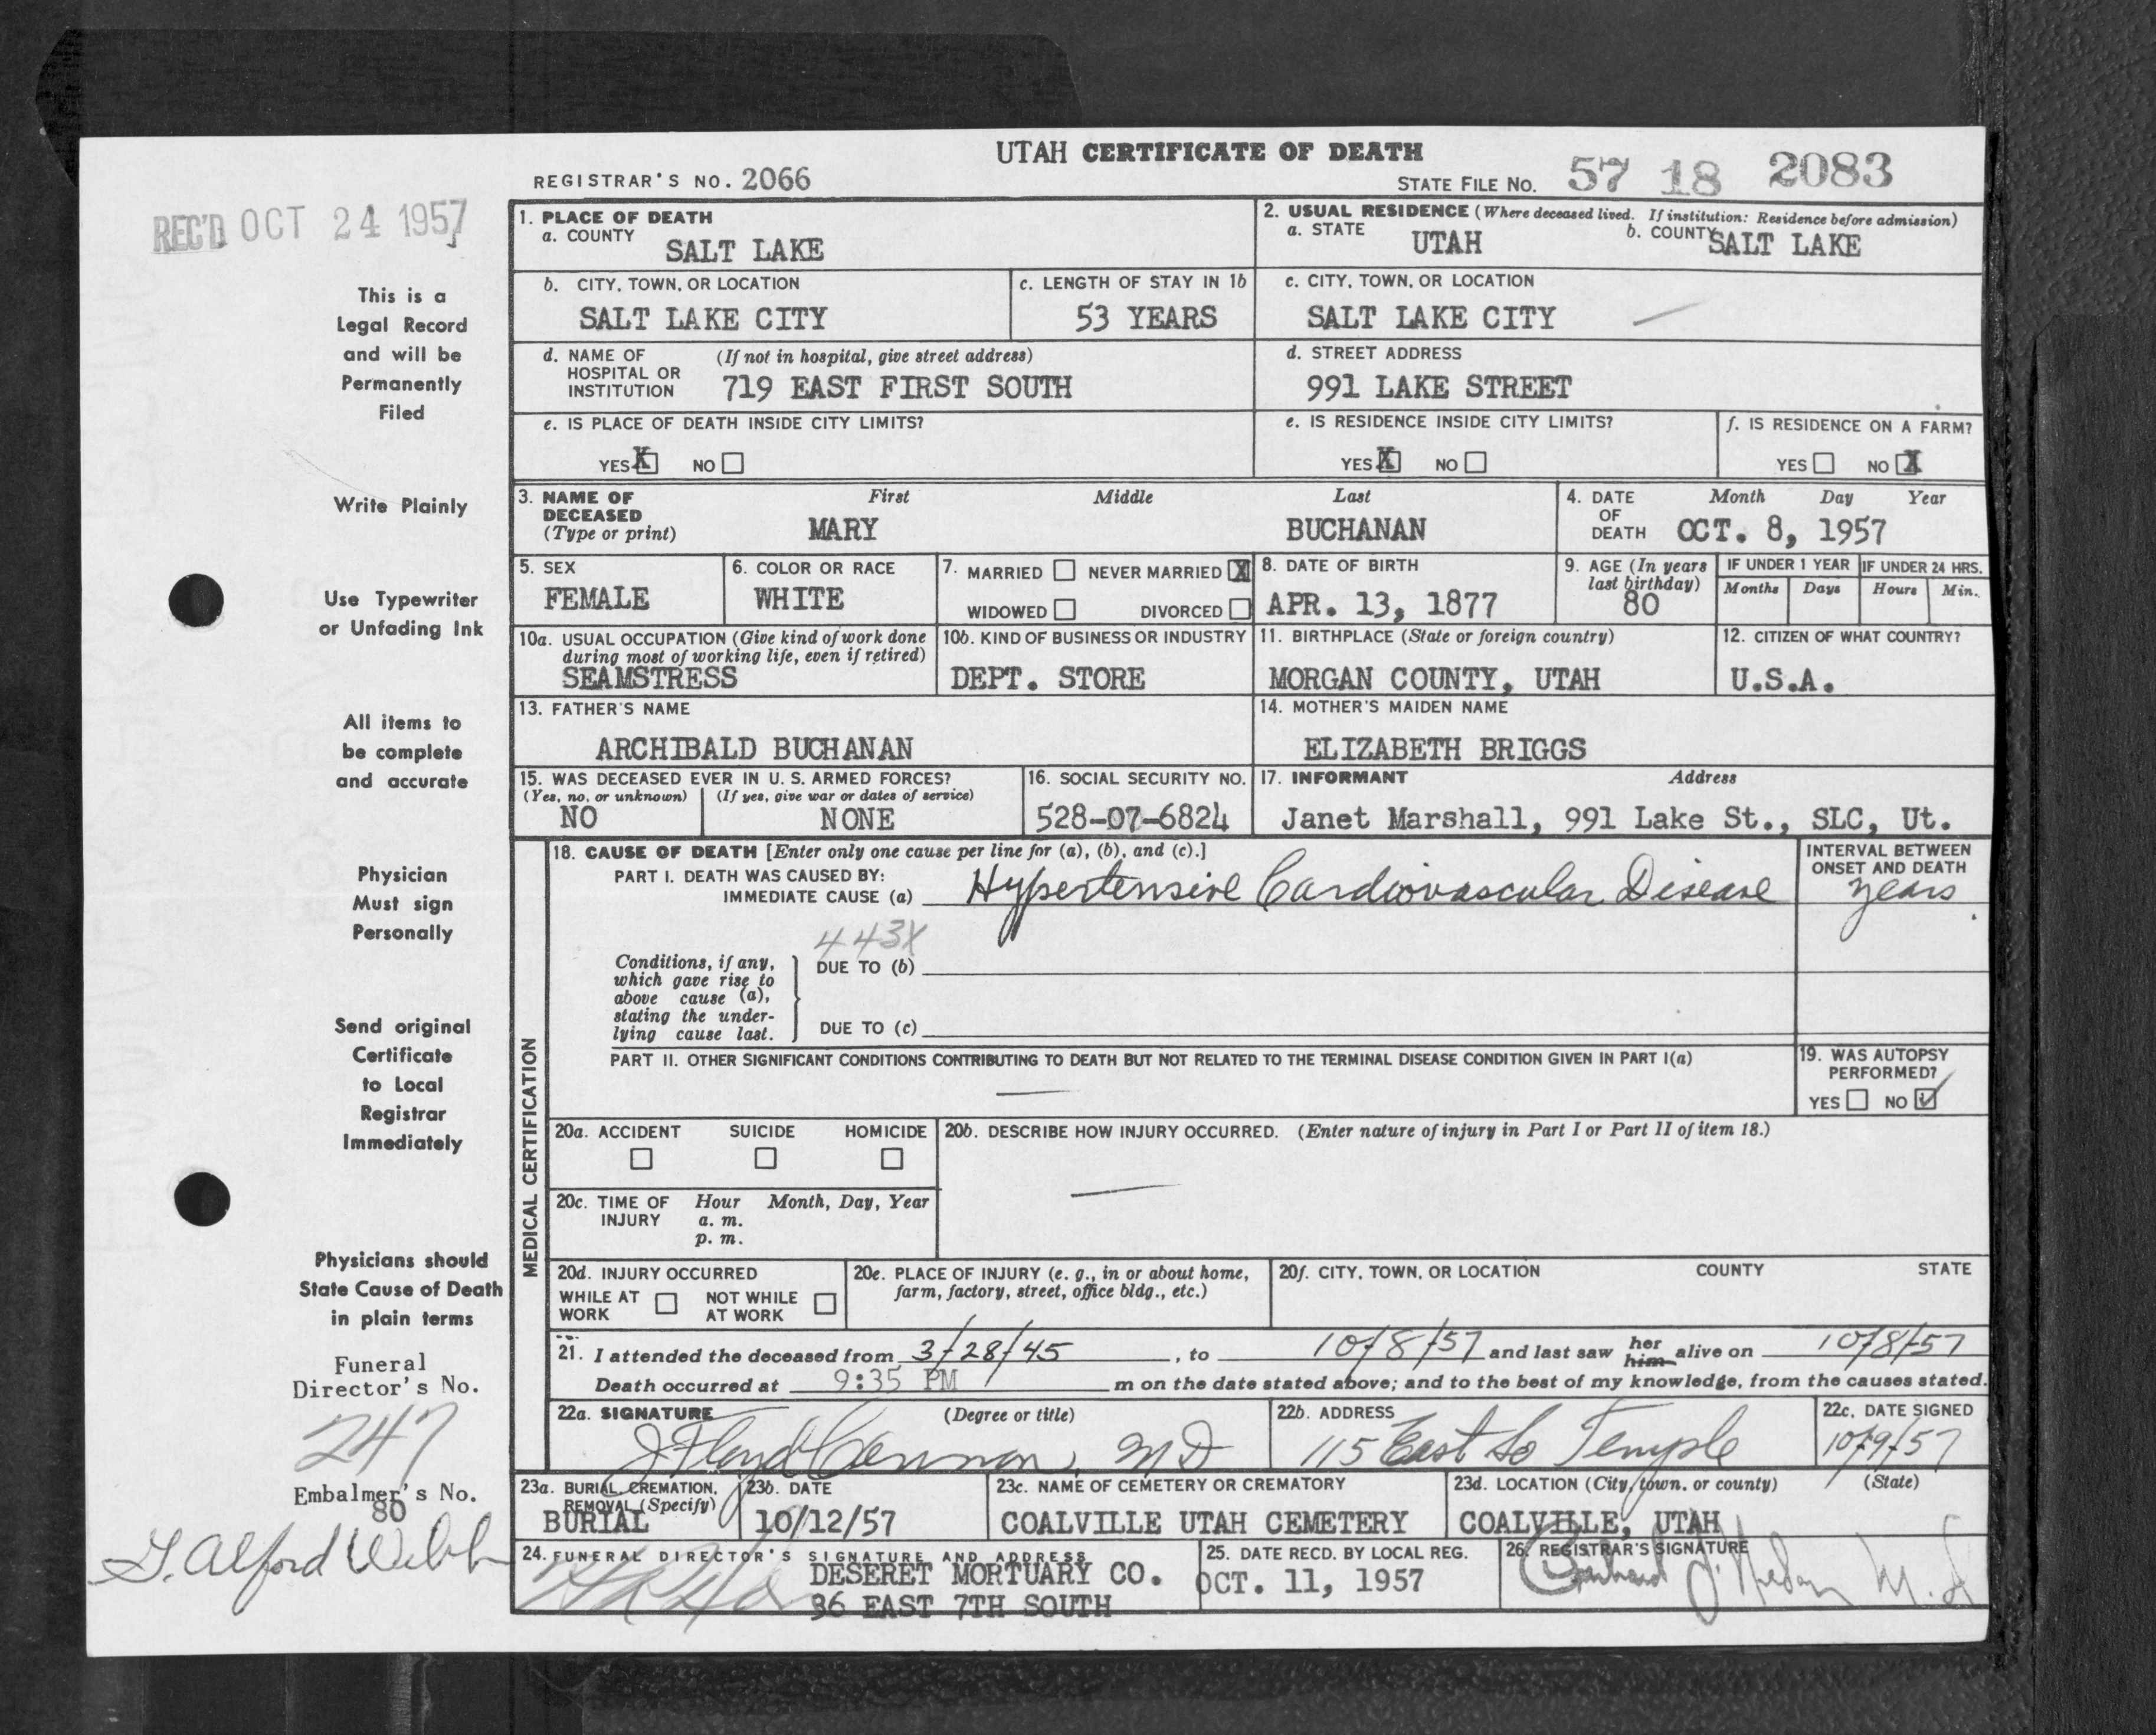 UTAH CERTIFICATE OF DEATH
REGISTRAR'S NO. 2066
STATE FILE NO. 57 18 2083
REC'D OCT 24 1957
This is a
Legal Record
and will be
Permanently
Filed
Write Plainly
Use Typewriter
or Unfading Ink
All items to
be complete
and accurate
Physician
Must sign
Personally
Send original
Certificate
to Local
Registrar
Immediately
Physicians should
State Cause of Death
in plain terms
Funeral
Director's No.
247
Embalmer's No.
80
G. Alford Webb
1. PLACE OF DEATH
a. COUNTY
SALT LAKE
2. USUAL RESIDENCE (Where deceased lived. If institution: Residence before admission)
a. STATE UTAH b. COUNTY SALT LAKE
b. CITY, TOWN, OR LOCATION
SALT LAKE CITY
c. LENGTH OF STAY IN 1b
53 YEARS
c. CITY, TOWN, OR LOCATION
SALT LAKE CITY
d. NAME OF (If not in hospital, give street address)
HOSPITAL OR
INSTITUTION 719 EAST FIRST SOUTH
d. STREET ADDRESS
991 LAKE STREET
e. IS PLACE OF DEATH INSIDE CITY LIMITS?
YES X NO
e. IS RESIDENCE INSIDE CITY LIMITS?
YES X NO
f. IS RESIDENCE ON A FARM?
YES NO X
3. NAME OF DECEASED (Type or print)
First Middle Last
MARY BUCHANAN
4. DATE OF DEATH
Month Day Year
OCT. 8, 1957
5. SEX
FEMALE
6. COLOR OR RACE
WHITE
7. MARRIED NEVER MARRIED X
WIDOWED DIVORCED
8. DATE OF BIRTH
APR. 13, 1877
9. AGE (In years
last birthday)
80
IF UNDER 1 YEAR
Months Days
IF UNDER 24 HRS.
Hours Min.
10a. USUAL OCCUPATION (Give kind of work done
during most of working life, even if retired)
SEAMSTRESS
10b. KIND OF BUSINESS OR INDUSTRY
DEPT. STORE
11. BIRTHPLACE (State or foreign country)
MORGAN COUNTY, UTAH
12. CITIZEN OF WHAT COUNTRY?
U.S.A.
13. FATHER'S NAME
ARCHIBALD BUCHANAN
14. MOTHER'S MAIDEN NAME
ELIZABETH BRIGGS
15. WAS DECEASED EVER IN U. S. ARMED FORCES?
(Yes, no, or unknown) (If yes, give war or dates of service)
NO NONE
16. SOCIAL SECURITY NO.
528-07-6824
17. INFORMANT Address
Janet Marshall, 991 Lake St., SLC, Ut.
MEDICAL CERTIFICATION
18. CAUSE OF DEATH [Enter only one cause per line for (a), (b), and (c).]
PART I. DEATH WAS CAUSED BY:
IMMEDIATE CAUSE (a) Hypertensive Cardiovascular Disease
INTERVAL BETWEEN
ONSET AND DEATH
years
443X
Conditions, if any,
which gave rise to
above cause (a),
stating the under-
lying cause last.
DUE TO (b)
DUE TO (c)
PART II. OTHER SIGNIFICANT CONDITIONS CONTRIBUTING TO DEATH BUT NOT RELATED TO THE TERMINAL DISEASE CONDITION GIVEN IN PART I(a)
—
19. WAS AUTOPSY
PERFORMED?
YES NO ✓
20a. ACCIDENT SUICIDE HOMICIDE
20b. DESCRIBE HOW INJURY OCCURRED. (Enter nature of injury in Part I or Part II of item 18.)
—
20c. TIME OF Hour Month, Day, Year
INJURY a. m.
p. m.
20d. INJURY OCCURRED
WHILE AT WORK NOT WHILE AT WORK
20e. PLACE OF INJURY (e. g., in or about home,
farm, factory, street, office bldg., etc.)
20f. CITY, TOWN, OR LOCATION COUNTY STATE
21. I attended the deceased from 3/28/45, to 10/8/57 and last saw her him alive on 10/8/57
Death occurred at 9:35 PM m on the date stated above; and to the best of my knowledge, from the causes stated.
22a. SIGNATURE (Degree or title)
J Floyd Cannon, MD
22b. ADDRESS
115 East So Temple
22c. DATE SIGNED
10/9/57
23a. BURIAL, CREMATION,
REMOVAL (Specify)
BURIAL
23b. DATE
10/12/57
23c. NAME OF CEMETERY OR CREMATORY
COALVILLE UTAH CEMETERY
23d. LOCATION (City, town, or county) (State)
COALVILLE, UTAH
24. FUNERAL DIRECTOR'S SIGNATURE AND ADDRESS
DESERET MORTUARY CO.
36 EAST 7TH SOUTH
25. DATE RECD. BY LOCAL REG.
OCT. 11, 1957
26. REGISTRAR'S SIGNATURE